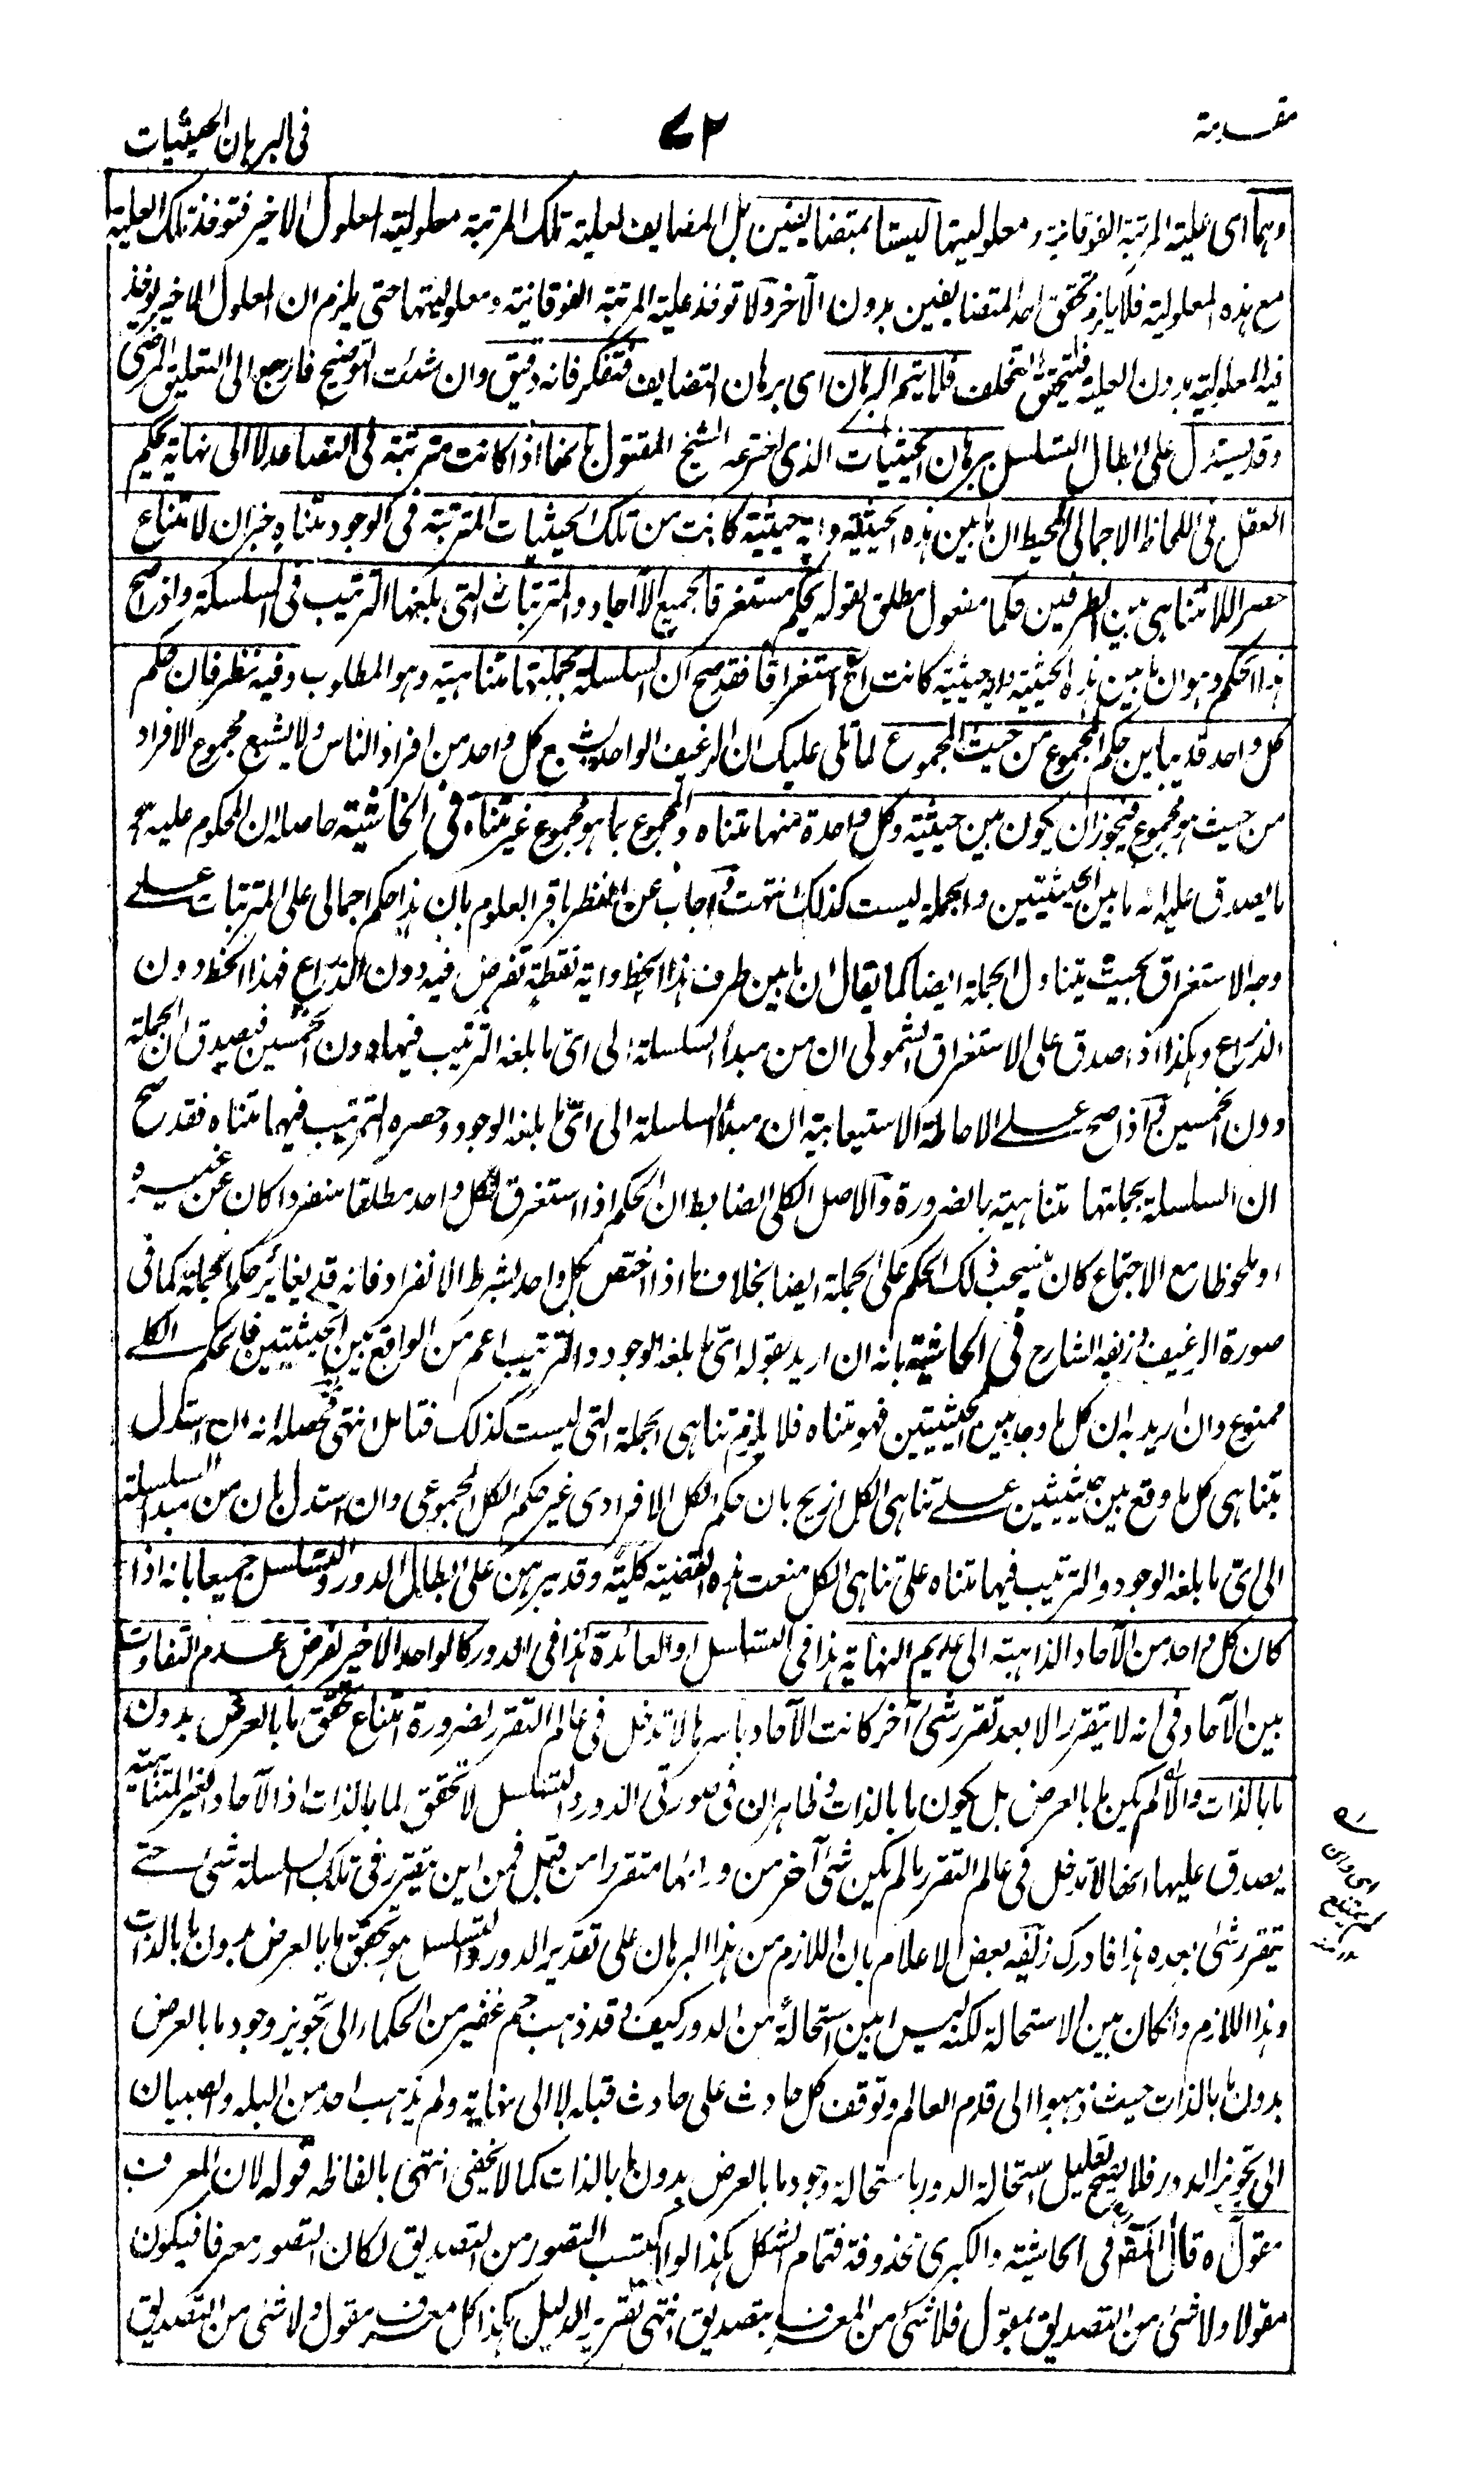 مقدمة
٧٢
فى البرهان الحيثيات
وهما اى علية المرتبة الفوقانية ومعلوليتها ليستا بمتضايفين بل المضايف لعلية تلك المرتبة معلولية المعلول الاخير فتوخذ تلك العلية
مع هذه المعلولية فلا يلزم تحقق احد المتضايفين بدون الآخر ولا توخذ علية المرتبة الفوقانية ومعلوليتها حتى يلزم ان المعلول الاخير يوخذ
فيه المعلولية بدون العلية فيتحقق التخلف فلا يتم البرهان اى برهان التضايف فتفكر فانه دقيق وان شئت التوضيح فارجع الى التعليق المرضى
وقد يستدل على ابطال التسلسل ببرهان الحيثيات الذى اخترعه الشيخ المقتول بانها اذا كانت مترتبة فى التصاعد لا الى نهاية يحكم
العقل فى اللحاظ الاجمالى المحيط ان ما بين هذه الحيثية واية حيثية كانت من تلك الحيثيات المترتبة فى الوجود متناه خبر ان لامتناع
حصر اللامتناهى بين الطرفين حكما مفعول مطلق لقوله يحكم مستغرقا لجميع الآحاد والمترتبات التى بلغها الترتيب فى السلسلة واذا صح
هذا الحكم وهو ان ما بين هذه الحيثية واية حيثية كانت الخ استغراقا فقد صح ان السلسلة بجملتها متناهية وهو المطلوب وفيه نظر فان حكم
كل واحد قد يباين حكم المجموع من حيث المجموع لما تلى عليك ان الرغيف الواحد يشبع كل واحد من افراد الناس ولا يشبع مجموع الافراد
من حيث هو مجموع فيجوز ان يكون بين حيثية وكل واحدة منها متناه والمجموع بما هو مجموع غير متناه فى الحاشية حاصله ان المحكوم عليه هو
ما يصدق عليه انه ما بين الحيثيتين والجملة ليست كذلك انتهت واجاب عن النظر باقر العلوم بان هذا حكم اجمالى على المترتبات على
وجه الاستغراق بحيث يتناول الجملة ايضا كما يقال ان ما بين طرف هذا الخط واية نقطة تفرض فيه دون الذراع فهذا الخط دون
الذراع وهكذا اذا صدق على الاستغراق الشمولى ان من مبدأ السلسلة الى اى ما بلغه الترتيب فيها دون الخمسين فيصدق ان الجملة
دون الخمسين فاذا صح على الاحاطة الاستيعابية ان مبدأ السلسلة الى اى ما بلغه الوجود وحصره الترتيب فيها متناه فقد صح
ان السلسلة بجملتها متناهية بالضرورة والاصل الكلى الضابط ان الحكم اذا استغرق لكل واحد مطلقا منفردا كان عن غيره
او ملحوظا مع الاجتماع كان ينسحب ذلك الحكم على الجملة ايضا بخلاف ما اذا اختص بكل واحد بشرط الانفراد فانه قد يغائر حكم الجملة كما فى
صورة الرغيف وزيفه الشارح فى الحاشية بانه ان اريد بقوله اى ما بلغه الوجود والترتيب اعم من الواقع بين الحيثيتين فالحكم الكلى
ممنوع وان اريد به ان كل ما وجد بين الحيثيتين فهو متناه فلا يلزم تناهى الجملة التى ليست كذلك فتامل انتهى محصله انه ان استدل
بتناهى كل ما وقع بين حيثيثين على تناهى الكل ازيح بان حكم الكل الافرادى غير حكم الكل المجموعى وان استدل بان من مبدأ السلسلة
الى اى ما بلغه الوجود والترتيب فيها متناه على تناهى الكل منعت هذه القضية كلية وقد يبرهن على ابطال الدور والتسلسل جميعا بانه اذا
كان كل واحد من الآحاد الذاهبة الى عديم النهاية هذا فى التسلسل او العائدة هذا فى الدور كالواحد الاخير لفرض عدم التفاوت
بين الآحاد فى انه لا يتقرر الا بعد تقرر شئ آخر كانت الآحاد باسرها لا تدخل فى عالم التقرر لضرورة امتناع تحقق ما بالعرض بدون
ما بالذات والا لم يكن ما بالعرض بل يكون ما بالذات وظاهر ان فى صورتى الدور والتسلسل لا تحقق لما بالذات اذ الآحاد الغير المتناهية
يصدق عليها انها لا تدخل فى عالم التقرر ما لم يكن شئ آخر من ورائها متقررا من قبل فمن اين يتقرر فى تلك السلسلة شئ حتى
يتقرر شئ بعده هذا فادرك زيفه بعض الاعلام بان اللازم من هذا البرهان على تقدير الدور والتسلسل هو تحقق ما بالعرض بدون ما بالذات
وهذا اللازم وان كان بين الاستحالة لكنه ليس ابين استحالة من الدور كيف وقد ذهب جم غفير من الحكماء الى تجويز وجود ما بالعرض
بدون ما بالذات حيث ذهبوا الى قدم العالم وتوقف كل حادث على حادث قبله لا الى نهاية ولم يذهب احد من البله والصبيان
الى تجويز الدور فلا يصح تعليل استحالة الدور باستحالة وجود ما بالعرض بدون ما بالذات كما لا يخفى انتهى بالفاظه قوله لان المعرف
مقول ه قال المص فى الحاشية والكبرى محذوفة فتمام الشكل هكذا لو اكتسب التصور من التصديق لكان التصور معرفا فيكون
مقولا ولا شئ من التصديق بمقول فلا شئ من المعرف بتصديق انتهى تقرير الدليل هكذا كل معرف مقول ولا شئ من التصديق
اى وان